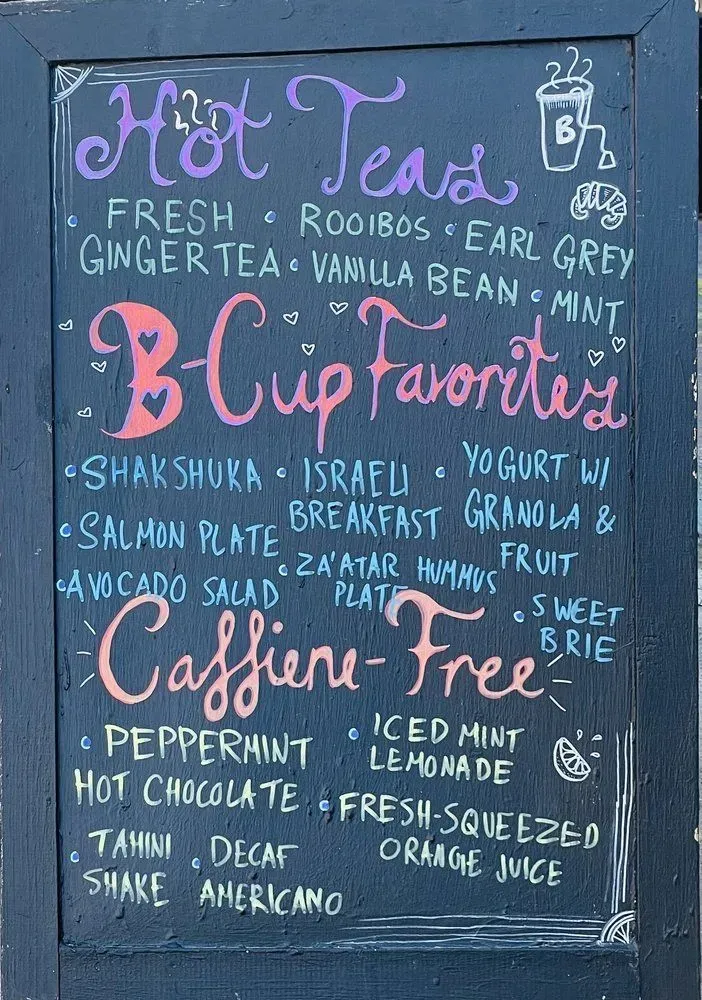 Hot Teas
B
• FRESH GINGER TEA
• ROOIBOS
• EARL GREY
• VANILLA BEAN
• MINT
B-Cup Favorites
• SHAKSHUKA
• ISRAELI
BREAKFAST
• YOGURT W/
GRANOLA &
FRUIT
• SALMON PLATE
• ZA'ATAR HUMMUS
PLATE
• AVOCADO SALAD
• SWEET
BRIE
Caffiene-Free
• PEPPERMINT
HOT CHOCOLATE
• ICED MINT
LEMONADE
• FRESH-SQUEEZED
ORANGE JUICE
• TAHINI
SHAKE
• DECAF
AMERICANO